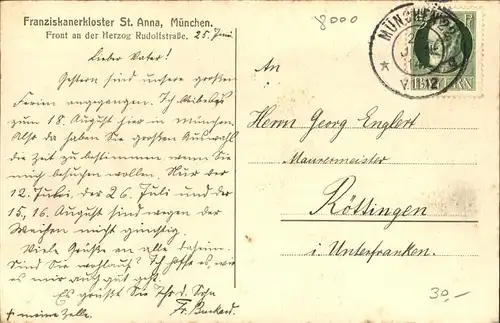 Franziskanerkloster St. Anna, München.
Front an der Herzog Rudolfstraße. 25. Juni
8000
Lieber Vater!
Gestern sind unsere großen
Ferien angegangen. Ich bleibe bis
zum 18. August hier in München.
Also da haben Sie großen Auswahl
die Zeit zu bestimmen wenn Sie
mich besuchen wollen. Nur der
12. Juli, der 26. Juli und der
15, 16. August sind wegen der
Weihen nicht günstig.
Viele Grüße an alle daheim.
Sind Sie wohlauf? Ich hoffe es, wie
es mir auch geht.
Es grüßt Sie Ihr d. Sohn
Fr. Burkard.
+ meine Zelle.
MÜNCHEN
BAYERN
An
Herrn Georg Englert
Maurermeister
Röttingen
i. Unterfranken.
30,-